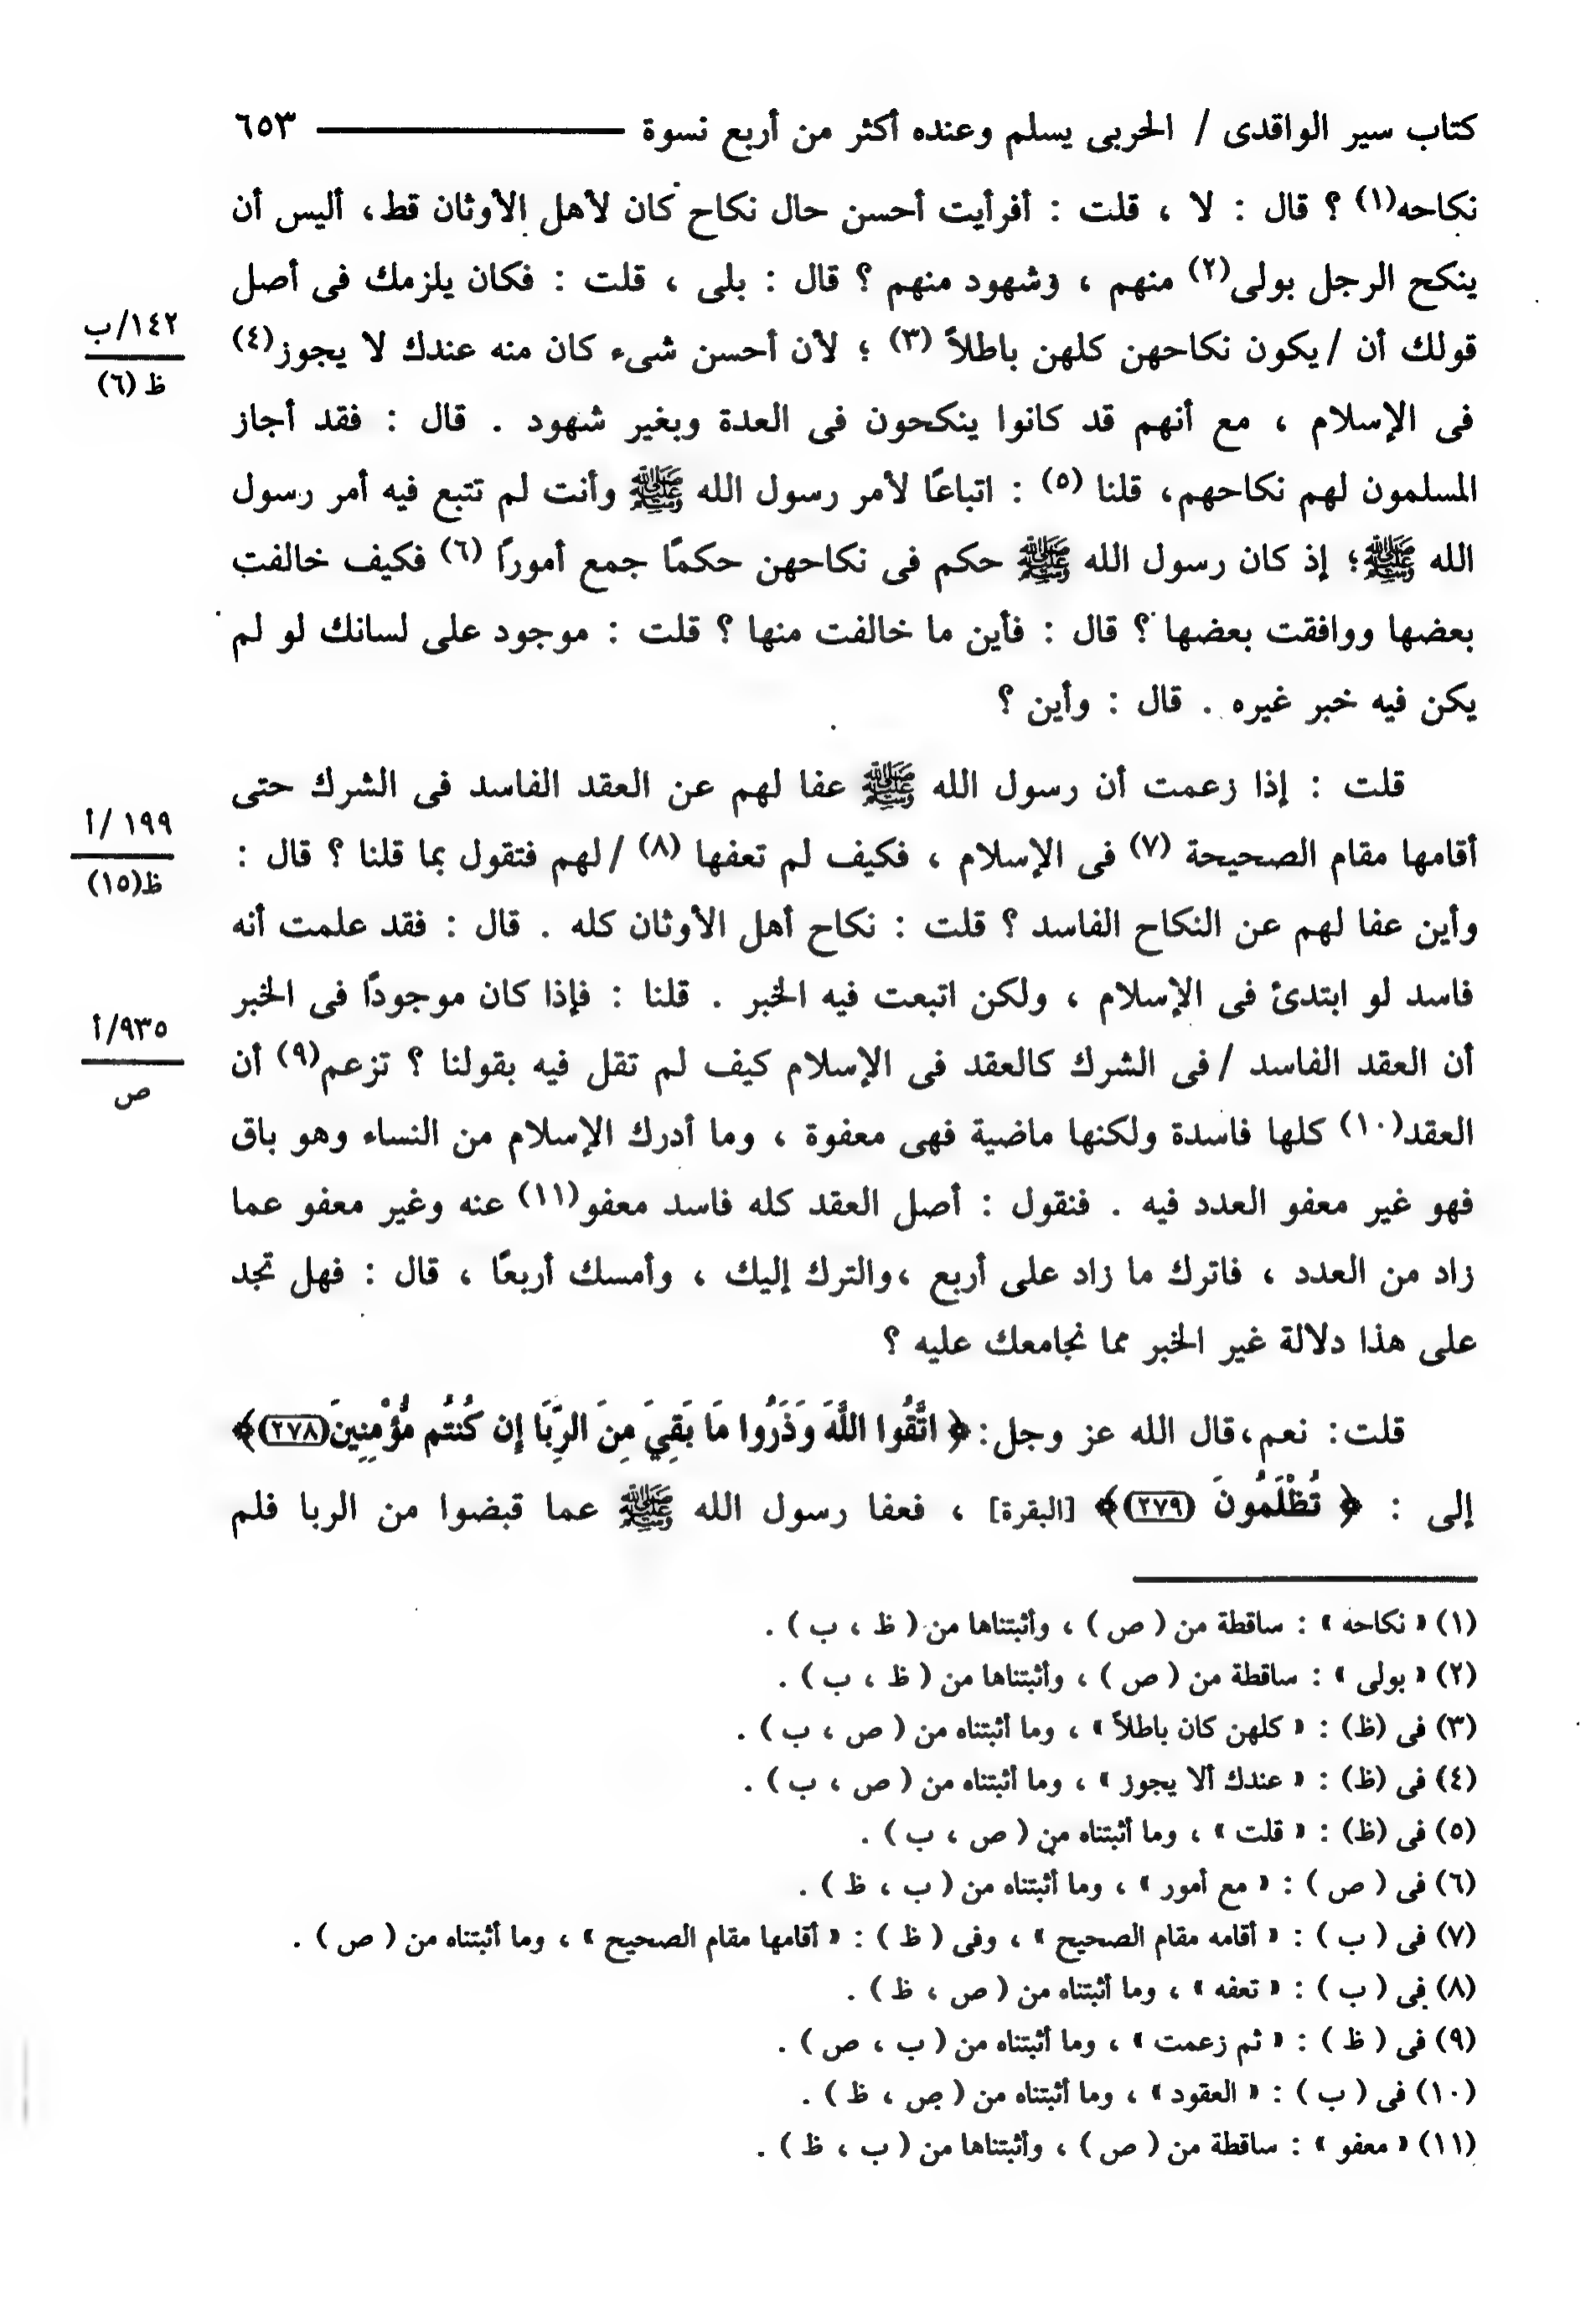 كتاب سير الواقدى / الحربى يسلم وعنده أكثر من أربع نسوة ——— ٦٥٣
نكاحه(١) ؟ قال : لا ، قلت : أفرأيت أحسن حال نكاح كان لأهل الأوثان قط، أليس أن
ينكح الرجل بولى(٢) منهم ، وشهود منهم ؟ قال : بلى ، قلت : فكان يلزمك فى أصل
١٤٢/ب
ظ (٦)
قولك أن /يكون نكاحهن كلهن باطلاً (٣) ؛ لأن أحسن شىء كان منه عندك لا يجوز(٤)
فى الإسلام ، مع أنهم قد كانوا ينكحون فى العدة وبغير شهود . قال : فقد أجاز
المسلمون لهم نكاحهم، قلنا (٥) : اتباعًا لأمر رسول الله ﷺ وأنت لم تتبع فيه أمر رسول
الله ﷺ؛ إذ كان رسول الله ﷺ حكم فى نكاحهن حكمًا جمع أمورًا (٦) فكيف خالفت
بعضها ووافقت بعضها ؟ قال : فأين ما خالفت منها ؟ قلت : موجود على لسانك لو لم
يكن فيه خبر غيره . قال : وأين ؟
قلت : إذا زعمت أن رسول الله ﷺ عفا لهم عن العقد الفاسد فى الشرك حتى
١٩٩ /أ
ظ(١٥)
أقامها مقام الصحيحة (٧) فى الإسلام ، فكيف لم تعفها (٨) /لهم فتقول بما قلنا ؟ قال :
وأين عفا لهم عن النكاح الفاسد ؟ قلت : نكاح أهل الأوثان كله . قال : فقد علمت أنه
فاسد لو ابتدئ فى الإسلام ، ولكن اتبعت فيه الخبر . قلنا : فإذا كان موجودًا فى الخبر
٩٣٥/أ
ص
أن العقد الفاسد /فى الشرك كالعقد فى الإسلام كيف لم تقل فيه بقولنا ؟ تزعم(٩) أن
العقد(١٠) كلها فاسدة ولكنها ماضية فهى معفوة ، وما أدرك الإسلام من النساء وهو باق
فهو غير معفو العدد فيه . فنقول : أصل العقد كله فاسد معفو(١١) عنه وغير معفو عما
زاد من العدد ، فاترك ما زاد على أربع ،والترك إليك ، وأمسك أربعًا ، قال : فهل تجد
على هذا دلالة غير الخبر مما نجامعك عليه ؟
قلت: نعم،قال الله عز وجل:﴿ اتَّقُوا اللَّهَ وَذَرُوا مَا بَقِيَ مِنَ الرِّبَا إِن كُنتُم مُّؤْمِنِينَ(٢٧٨)﴾
إلى : ﴿ تُظْلَمُونَ (٢٧٩)﴾ [البقرة] ، فعفا رسول الله ﷺ عما قبضوا من الربا فلم
(١) « نكاحه » : ساقطة من ( ص ) ، وأثبتناها من ( ظ ، ب ) .
(٢) « بولى » : ساقطة من ( ص ) ، وأثبتناها من ( ظ ، ب ) .
(٣) فى (ظ) : « كلهن كان باطلاً » ، وما أثبتناه من ( ص ، ب ) .
(٤) فى (ظ) : « عندك ألا يجوز » ، وما أثبتناه من ( ص ، ب ) .
(٥) فى (ظ) : « قلت » ، وما أثبتناه من ( ص ، ب ) .
(٦) فى ( ص ) : « مع أمور » ، وما أثبتناه من ( ب ، ظ ) .
(٧) فى ( ب ) : « أقامه مقام الصحيح » ، وفى ( ظ ) : « أقامها مقام الصحيح » ، وما أثبتناه من ( ص ) .
(٨) فى ( ب ) : « تعفه » ، وما أثبتناه من ( ص ، ظ ) .
(٩) فى ( ظ ) : « ثم زعمت » ، وما أثبتناه من ( ب ، ص ) .
(١٠) فى ( ب ) : « العقود » ، وما أثبتناه من ( ص ، ظ ) .
(١١) « معفو » : ساقطة من ( ص ) ، وأثبتناها من ( ب ، ظ ) .